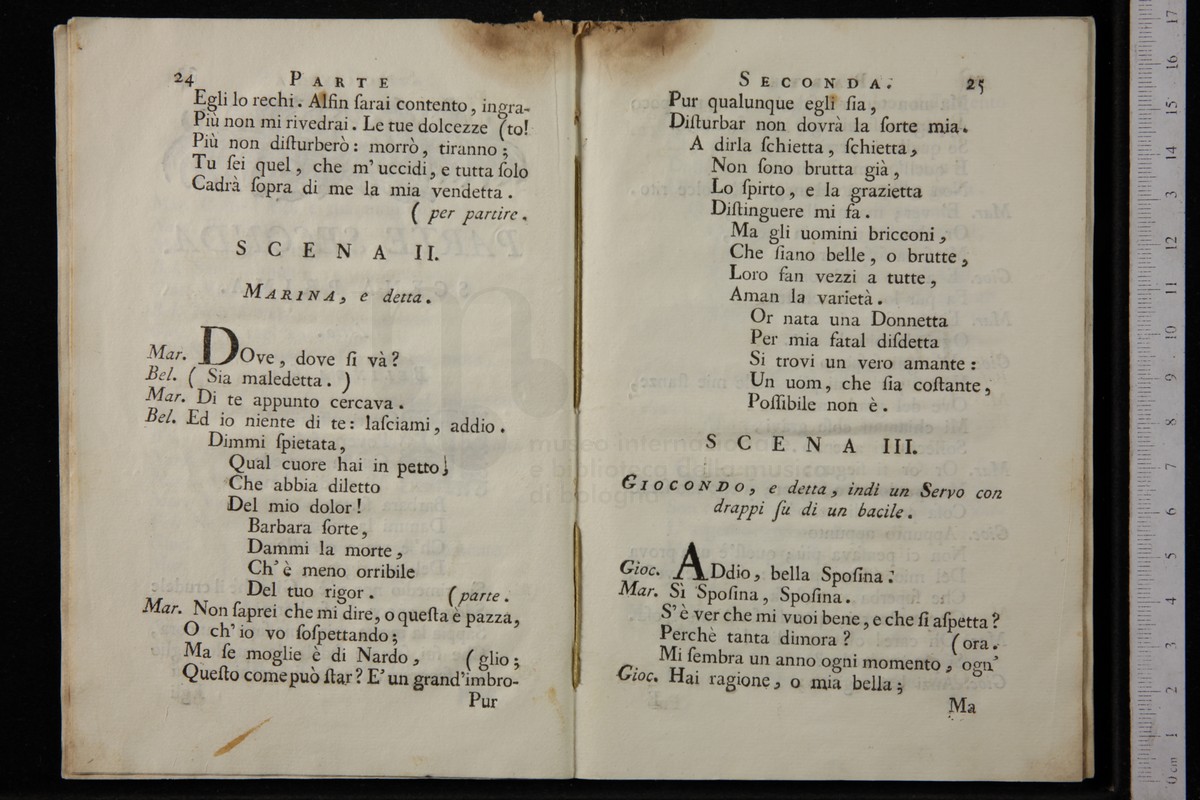 24 PARTE
Egli lo rechi. Alfin ſarai contento, ingra-
Più non mi rivedrai. Le tue dolcezze (to!
Più non diſturberò: morrò, tiranno;
Tu ſei quel, che m' uccidi, e tutta ſolo
Cadrà ſopra di me la mia vendetta.
( per partire.
SCENA II.
MARINA, e detta.
Mar. DOve, dove ſi và?
Bel. ( Sia maledetta. )
Mar. Di te appunto cercava.
Bel. Ed io niente di te: laſciami, addio.
Dimmi ſpietata,
Qual cuore hai in petto
Che abbia diletto
Del mio dolor!
Barbara ſorte,
Dammi la morte,
Ch' è meno orribile
Del tuo rigor. (parte.
Mar. Non ſaprei che mi dire, o queſta è pazza,
O ch' io vo ſoſpettando;
Ma ſe moglie è di Nardo, (glio;
Queſto come può ſtar? E' un grand'imbro-
Pur
SECONDA. 25
Pur qualunque egli ſia,
Diſturbar non dovrà la ſorte mia.
A dirla ſchietta, ſchietta,
Non ſono brutta già,
Lo ſpirto, e la grazietta
Diſtinguere mi fa.
Ma gli uomini bricconi,
Che ſiano belle, o brutte,
Loro fan vezzi a tutte,
Aman la varietà.
Or nata una Donnetta
Per mia fatal diſdetta
Si trovi un vero amante:
Un uom, che ſia coſtante,
Poſſibile non è.
SCENA III.
GIOCONDO, e detta, indi un Servo con
drappi ſu di un bacile.
Gioc. ADdio, bella Spoſina:
Mar. Sì Spoſina, Spoſina.
S' è ver che mi vuoi bene, e che ſi aſpetta?
Perchè tanta dimora? (ora.
Mi ſembra un anno ogni momento, ogn'
Gioc. Hai ragione, o mia bella;
Ma
museo internazionale
e biblioteca della musica
di bologna